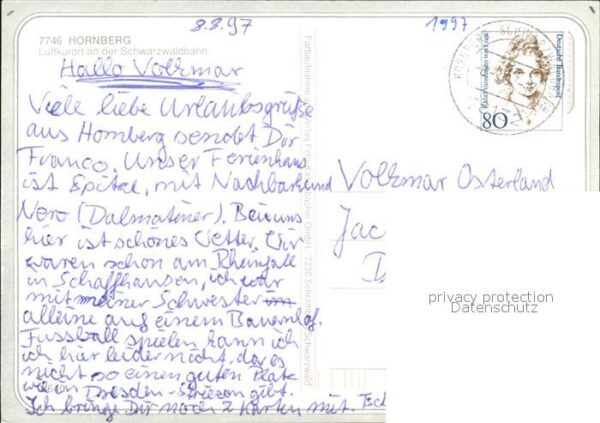 8.8.97
1997
7746 HORNBERG
Luftkurort an der Schwarzwaldbahn
Hallo Volkmar
Viele liebe Urlaubsgrüße
aus Hornberg sendet Dir
Franco. Unser Ferienhaus
ist Spitze, mit Nachbarhund
Nero (Dalmatiner). Bei uns
hier ist schönes Wetter. Wir
waren schon am Rheinfall
in Schaffhausen, ich war
mit meiner Schwester im
alleine auf einem Bauernhof.
Fussball spielen kann ich
ich hier leider nicht, da es
nicht so einen guten Platz
wie in Dresden-Striesen gibt.
Ich bringe Dir noch 2 Karten mit.
Volkmar Osterland
Jac
D
Deutsche Bundespost
80
privacy protection
Datenschutz